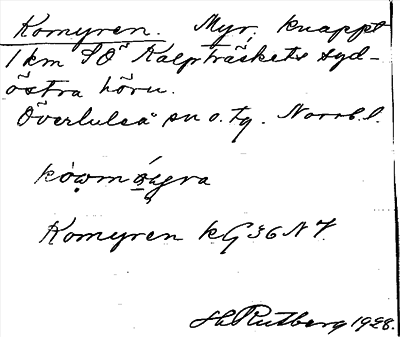 Komyren. Myr, knappt
1 km SO Kalpträskets syd-
östra hörn.
Överluleå sn o. tg. Norrb. l.
Komyren kG36N7.
H. Rutberg 1928.